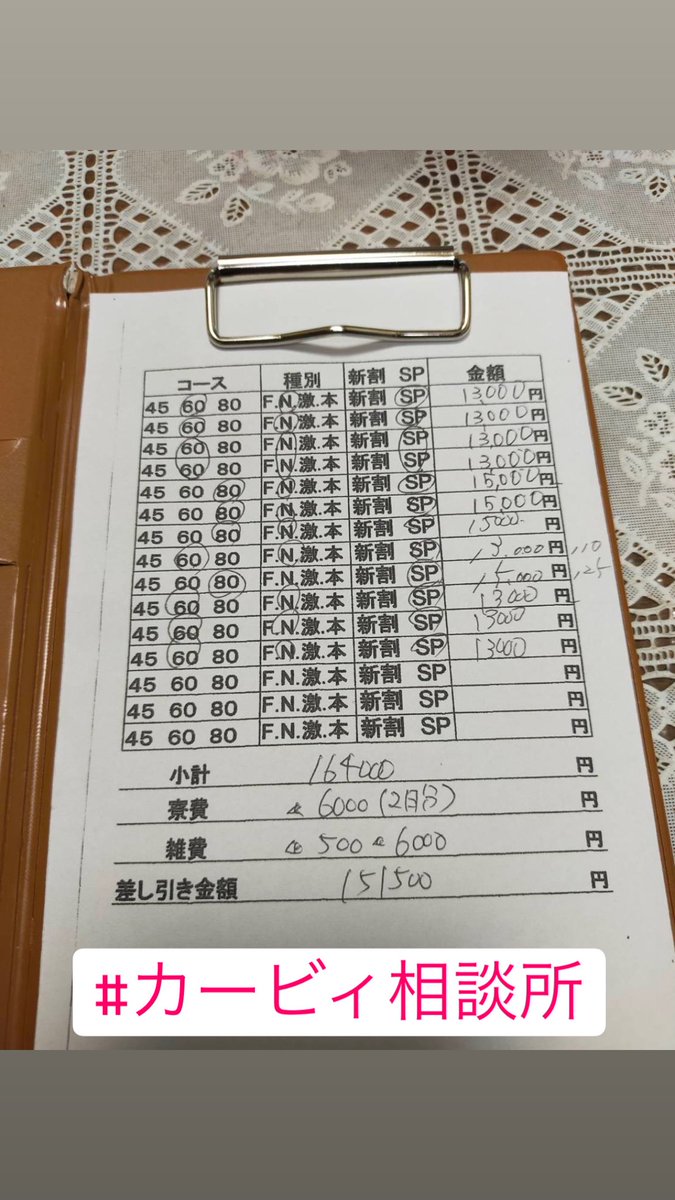 コース 種別 新割 SP 金額
45 60 80 F.N.激.本 新割 SP 13000円
45 60 80 F.N.激.本 新割 SP 13000円
45 60 80 F.N.激.本 新割 SP 13,000円
45 60 80 F.N.激.本 新割 SP 13,000円
45 60 80 F.N.激.本 新割 SP 15,000円
45 60 80 F.N.激.本 新割 SP 15,000円
45 60 80 F.N.激.本 新割 SP 15000. 円
45 60 80 F.N.激.本 新割 SP 13.000円 110
45 60 80 F.N.激.本 新割 SP 15.000円 125
45 60 80 F.N.激.本 新割 SP 13000円
45 60 80 F.N.激.本 新割 SP 13000 円
45 60 80 F.N.激.本 新割 SP 13000 円
45 60 80 F.N.激.本 新割 SP 円
45 60 80 F.N.激.本 新割 SP 円
45 60 80 F.N.激.本 新割 SP 円
小計 164000 円
寮費 6000(2日分) 円
雑費 500 6000 円
差し引き金額 151500 円
#カービィ相談所